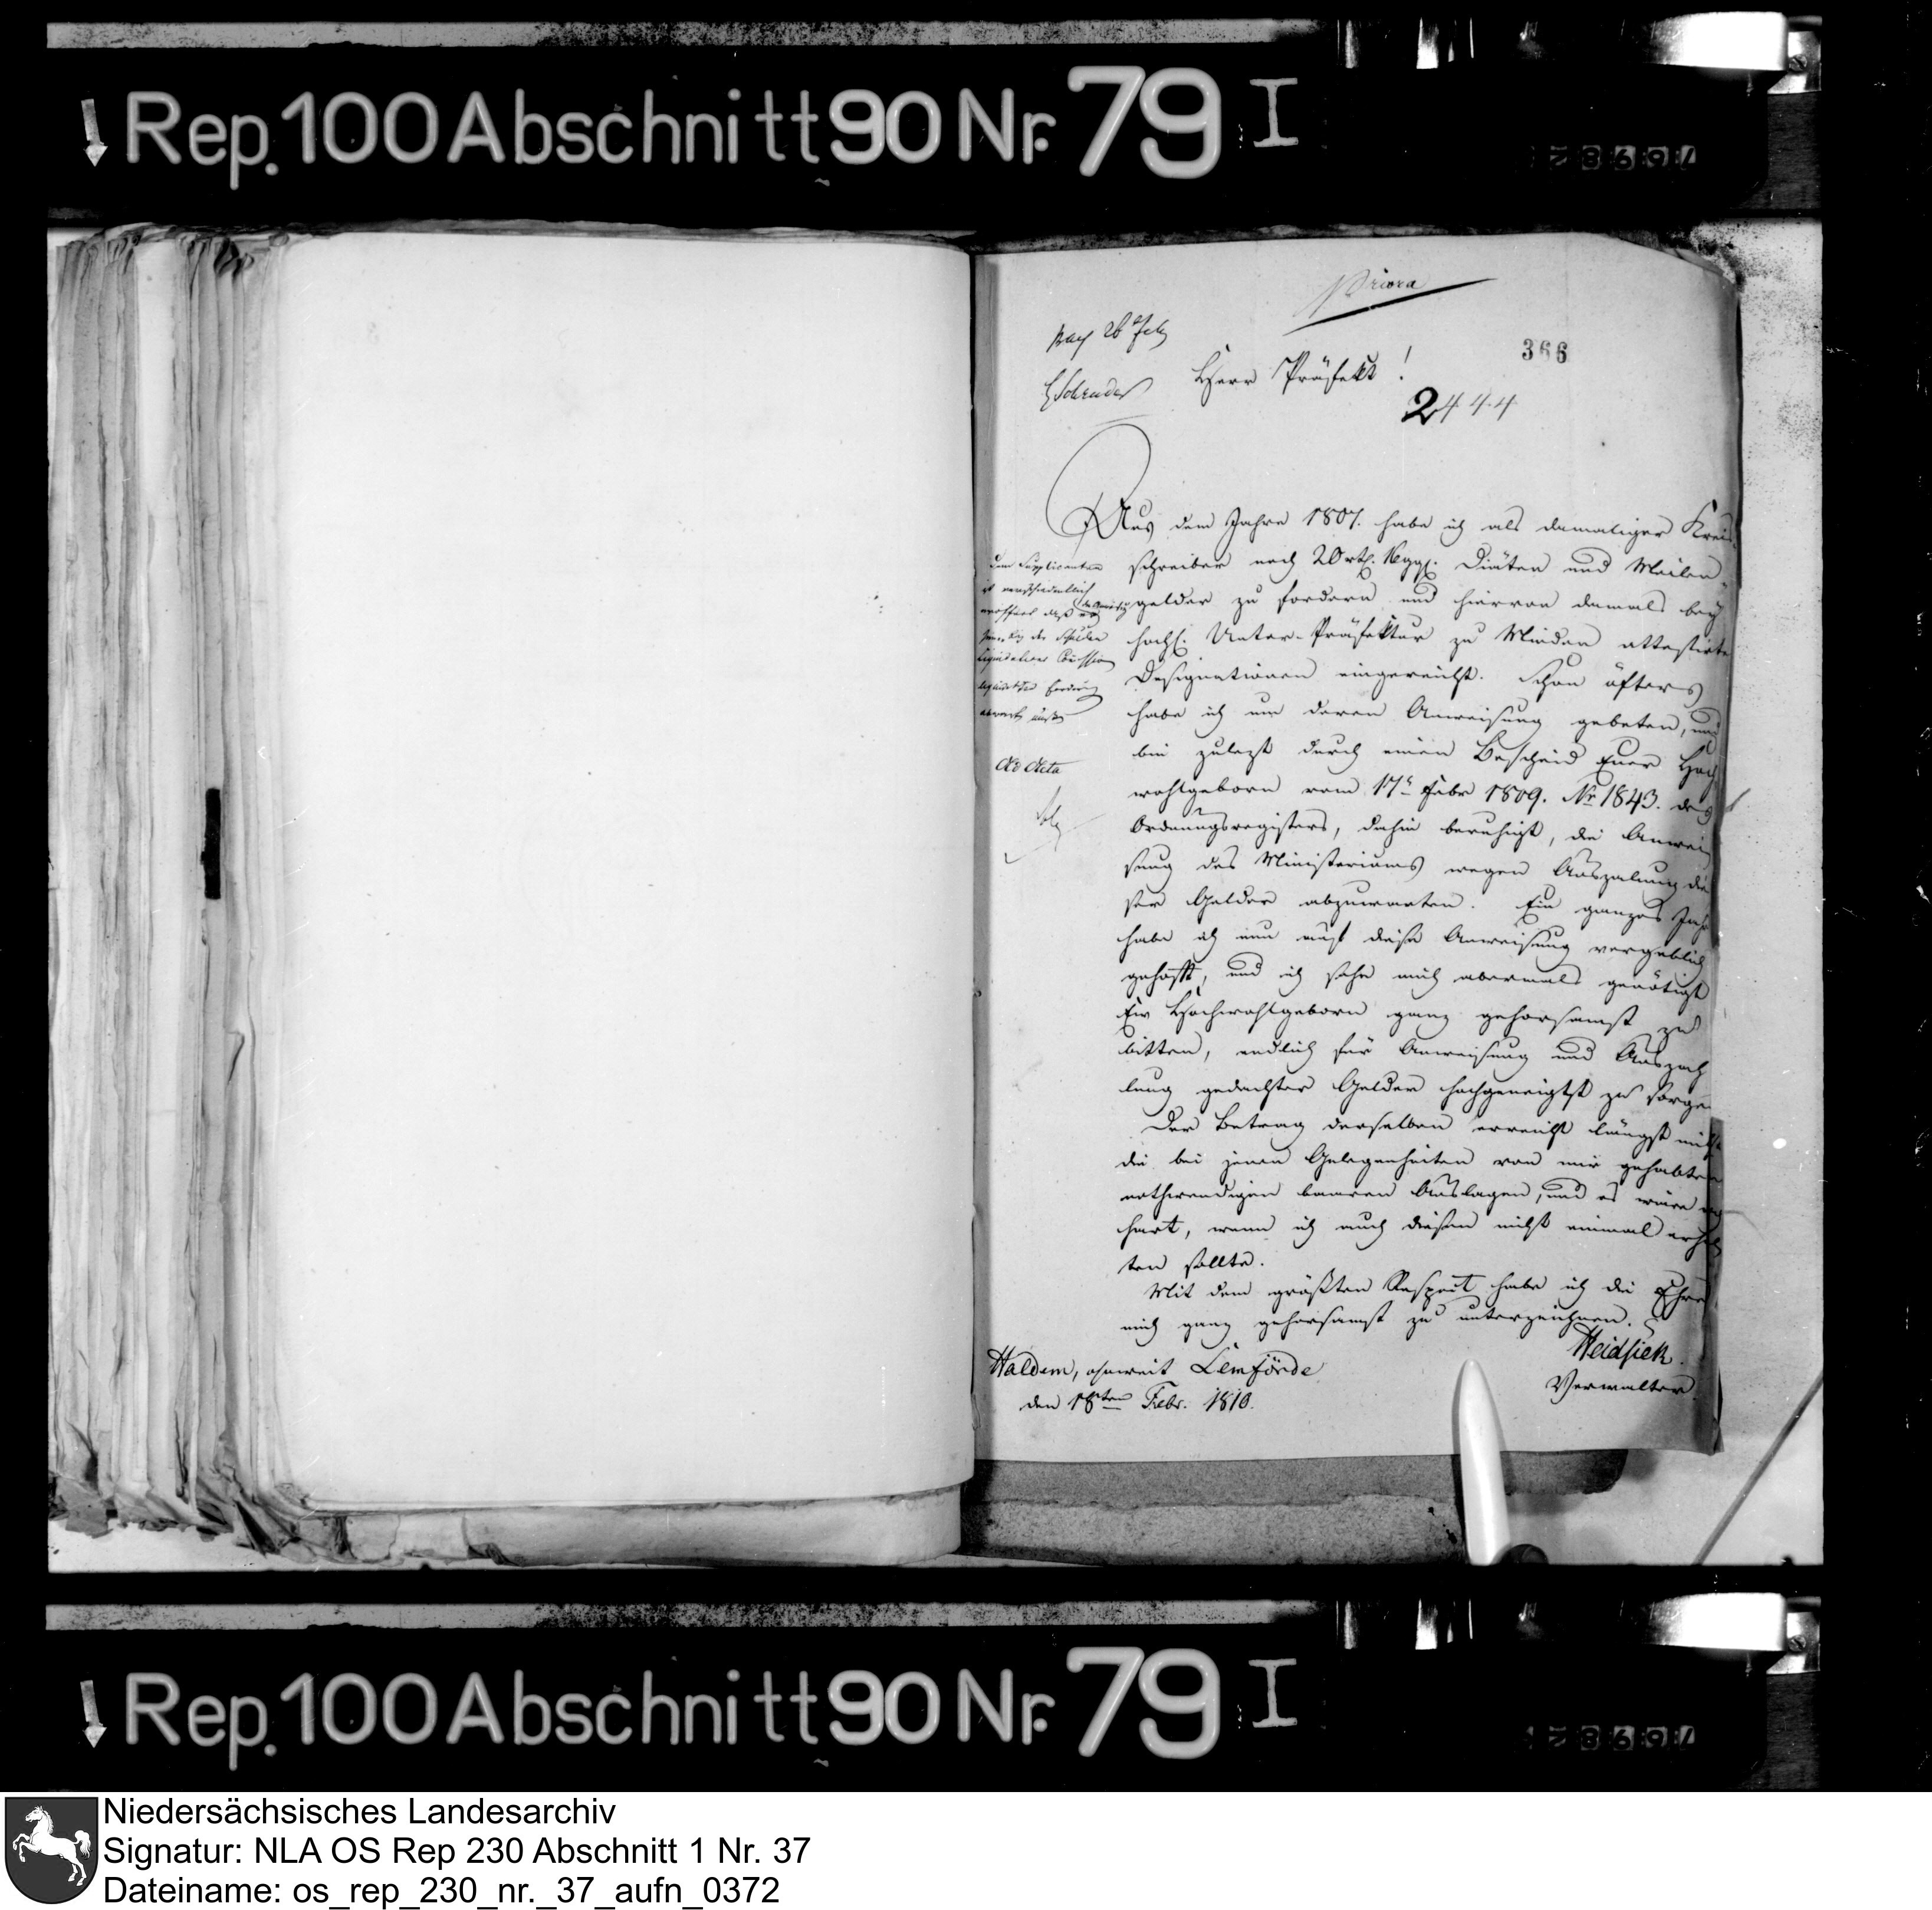 Rep. 100 Abschnitt 90 Nr. 79 I
Priora
366
Herr Präfekt!
Schrader
2444
Aus dem Jahre 1807. habe ich als damaliger Kreis-
schreiber noch 20 rtl. 16 ggl. Diäten und Meilen-
gelder zu fordern und hiervon damals bey
hochl. Unter-Präfektur zu Minden attestirte
Designationen eingereicht. Schon öfters
habe ich um deren Anweisung gebeten, und
bin zulezt durch einen Bescheid Euer Hoch
wohlgeborn vom 17t Febr 1809. Nr 1843. des
Ordnungsregisters, dahin beruhigt, die Anwei
sung des Ministeriums wegen Auszalung die
ser Gelder abzuwarten. Ein ganzes Jahr
habe ich nun auf diese Anweisung vergeblich
gehofft, und ich sehe mich abermals genötigt
Ew Hochwohlgeborn ganz gehorsamst zu
bitten, endlich für Anweisung und Auszah
lung gedachter Gelder hochgeneigtst zu sorgen
Der Betrag derselben erreicht längst nicht
die bei jenen Gelegenheiten von mir gehabten
nothwendigen baaren Auslagen, und es wäre
hart, wenn ich auch diesen nicht einmal erhal
ten sollte.
Mit dem größten Respect habe ich die Ehre
mich ganz gehorsamst zu unterzeichnen.
Heidsiek.
Verwalter.
Haldem, ohnweit Lemförde
den 18ten Febr. 1810.
Dem Supplicanten
ist verschiedentlich
eröffnet daß
der Schulden
Liquidations
Ad Acta
Rep. 100 Abschnitt 90 Nr. 79 I
Niedersächsisches Landesarchiv
Signatur: NLA OS Rep 230 Abschnitt 1 Nr. 37
Dateiname: os_rep_230_nr._37_aufn_0372